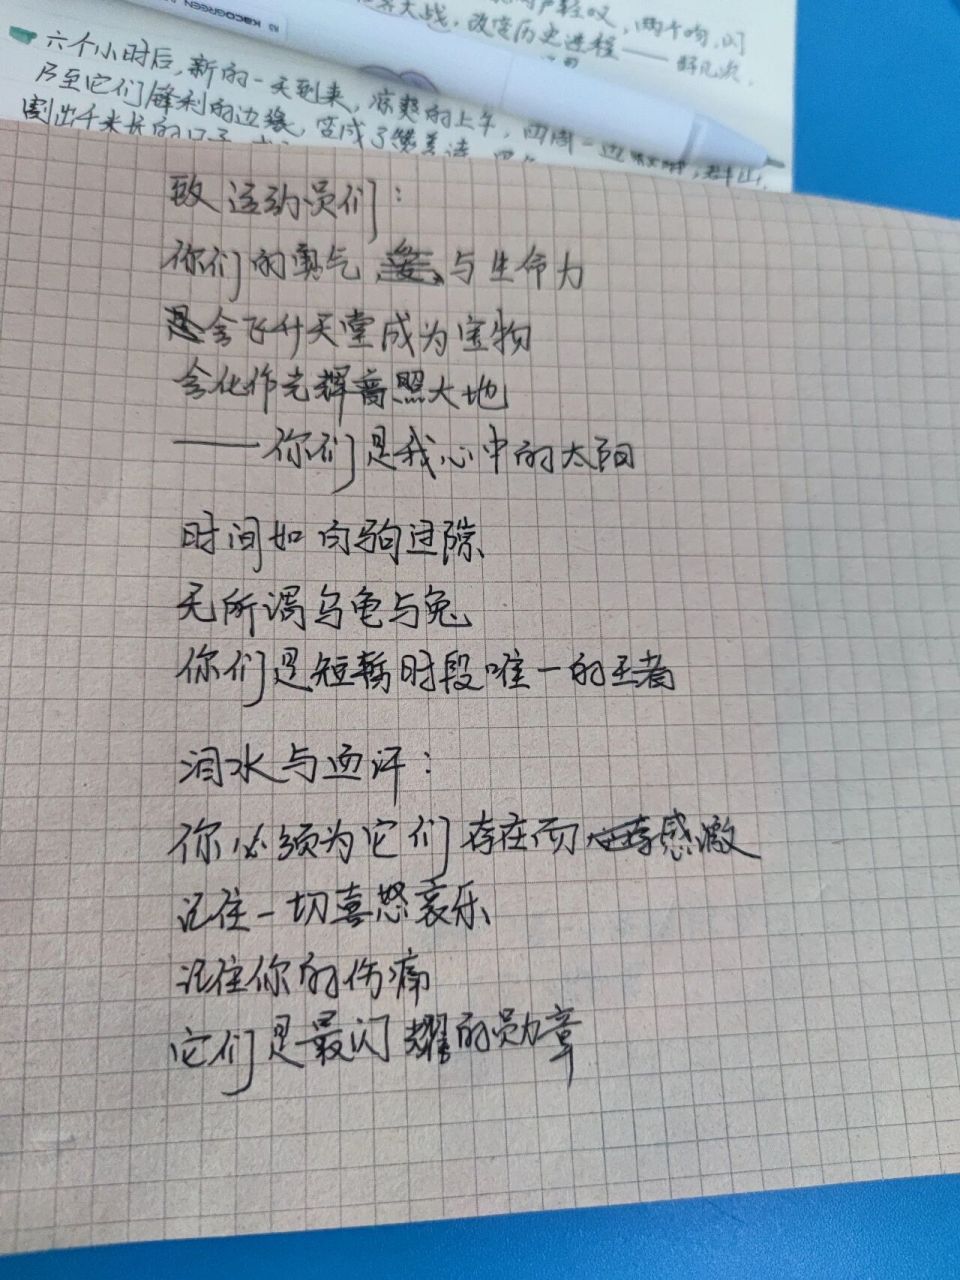 KACOGREEN
大战，改变历史进程——好几次，
六个小时后，新的一天到来，凉爽的上午，雨周一边
乃至它们锋利的边缘，
割出千米长的口子
致运动员们：
你们的勇气、与生命力
会飞升天堂成为宝物
会化作光辉高照大地
——你们是我心中的太阳
时间如白驹过隙、
无所谓乌龟与兔
你们是短暂时段唯一的王者
泪水与血汗：
你必须为它们存在而感激
记住一切喜怒哀乐、
记住你的伤痛
它们是最闪耀的勋章